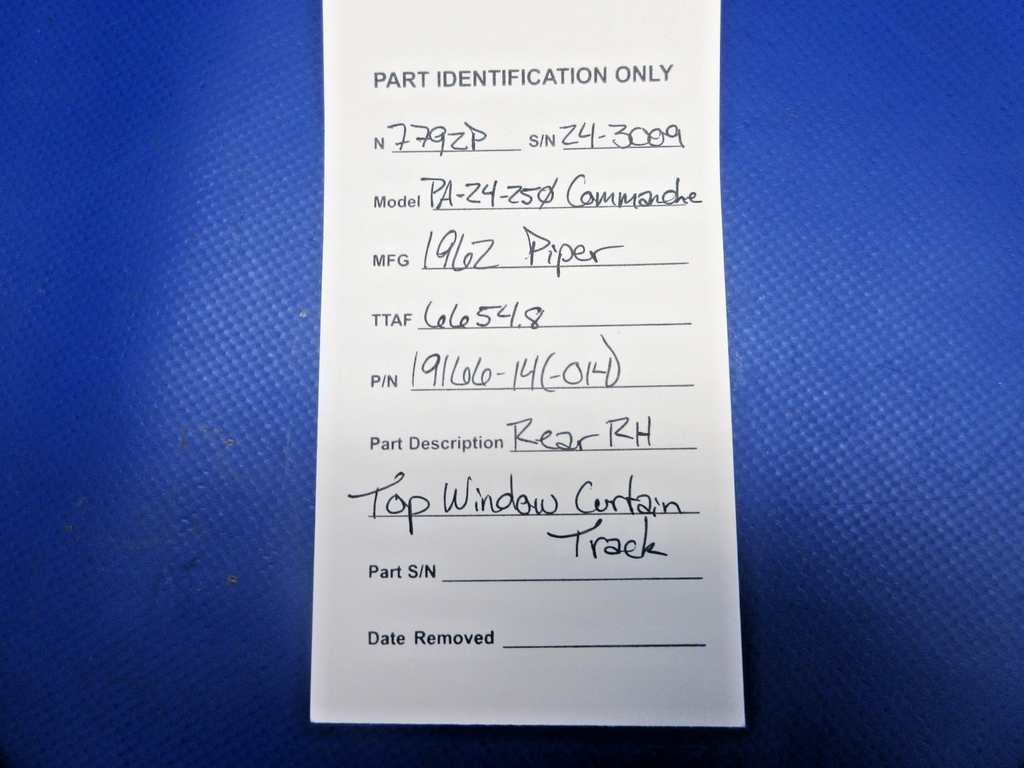 PART IDENTIFICATION ONLY
N 7792P S/N 24-3009
Model PA-24-250 Commanche
MFG 1962 Piper
TTAF 6654.8
P/N 19166-14(-014)
Part Description Rear RH
Top Window Curtain
Track
Part S/N
Date Removed